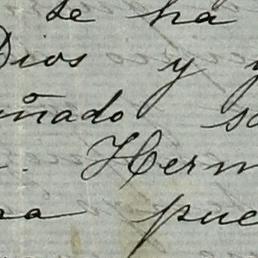 se ha
Dios y y
ñado so
. Herm
na pue